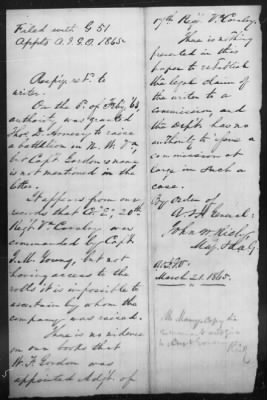 Filed with G 51
Appts A.I.G.O. 1865
Resp'y ret'd to
writer.
On the 5th of Feby '63,
authority was granted
Tho. D. Armesy to raise
a battalion in N. W. Va
but Capt Gordon's name
is not mentioned in the
letter.
It appears from our
records that Co "E", 20th
Regt Va Cavalry was
commanded by Capt
J. W. Young, but not
having access to the
rolls it is impossible to
ascertain by whom the
company was raised.
There is no evidence
on our books that
W. F. Gordon was
appointed Adjt. of
17th Regt. V. Cavalry.
There is nothing
presented in this
paper to establish
the legal claim of
the writer to a
commission and
the Dept has no
authority to issue a
commission at
large in such a
case.
By Order of
A & I General
John W Riely
Maj & A.A.G.
A.I.G.O.
March 21. 1865.
Mr Maury copy this
to Capt Gordon
Riely